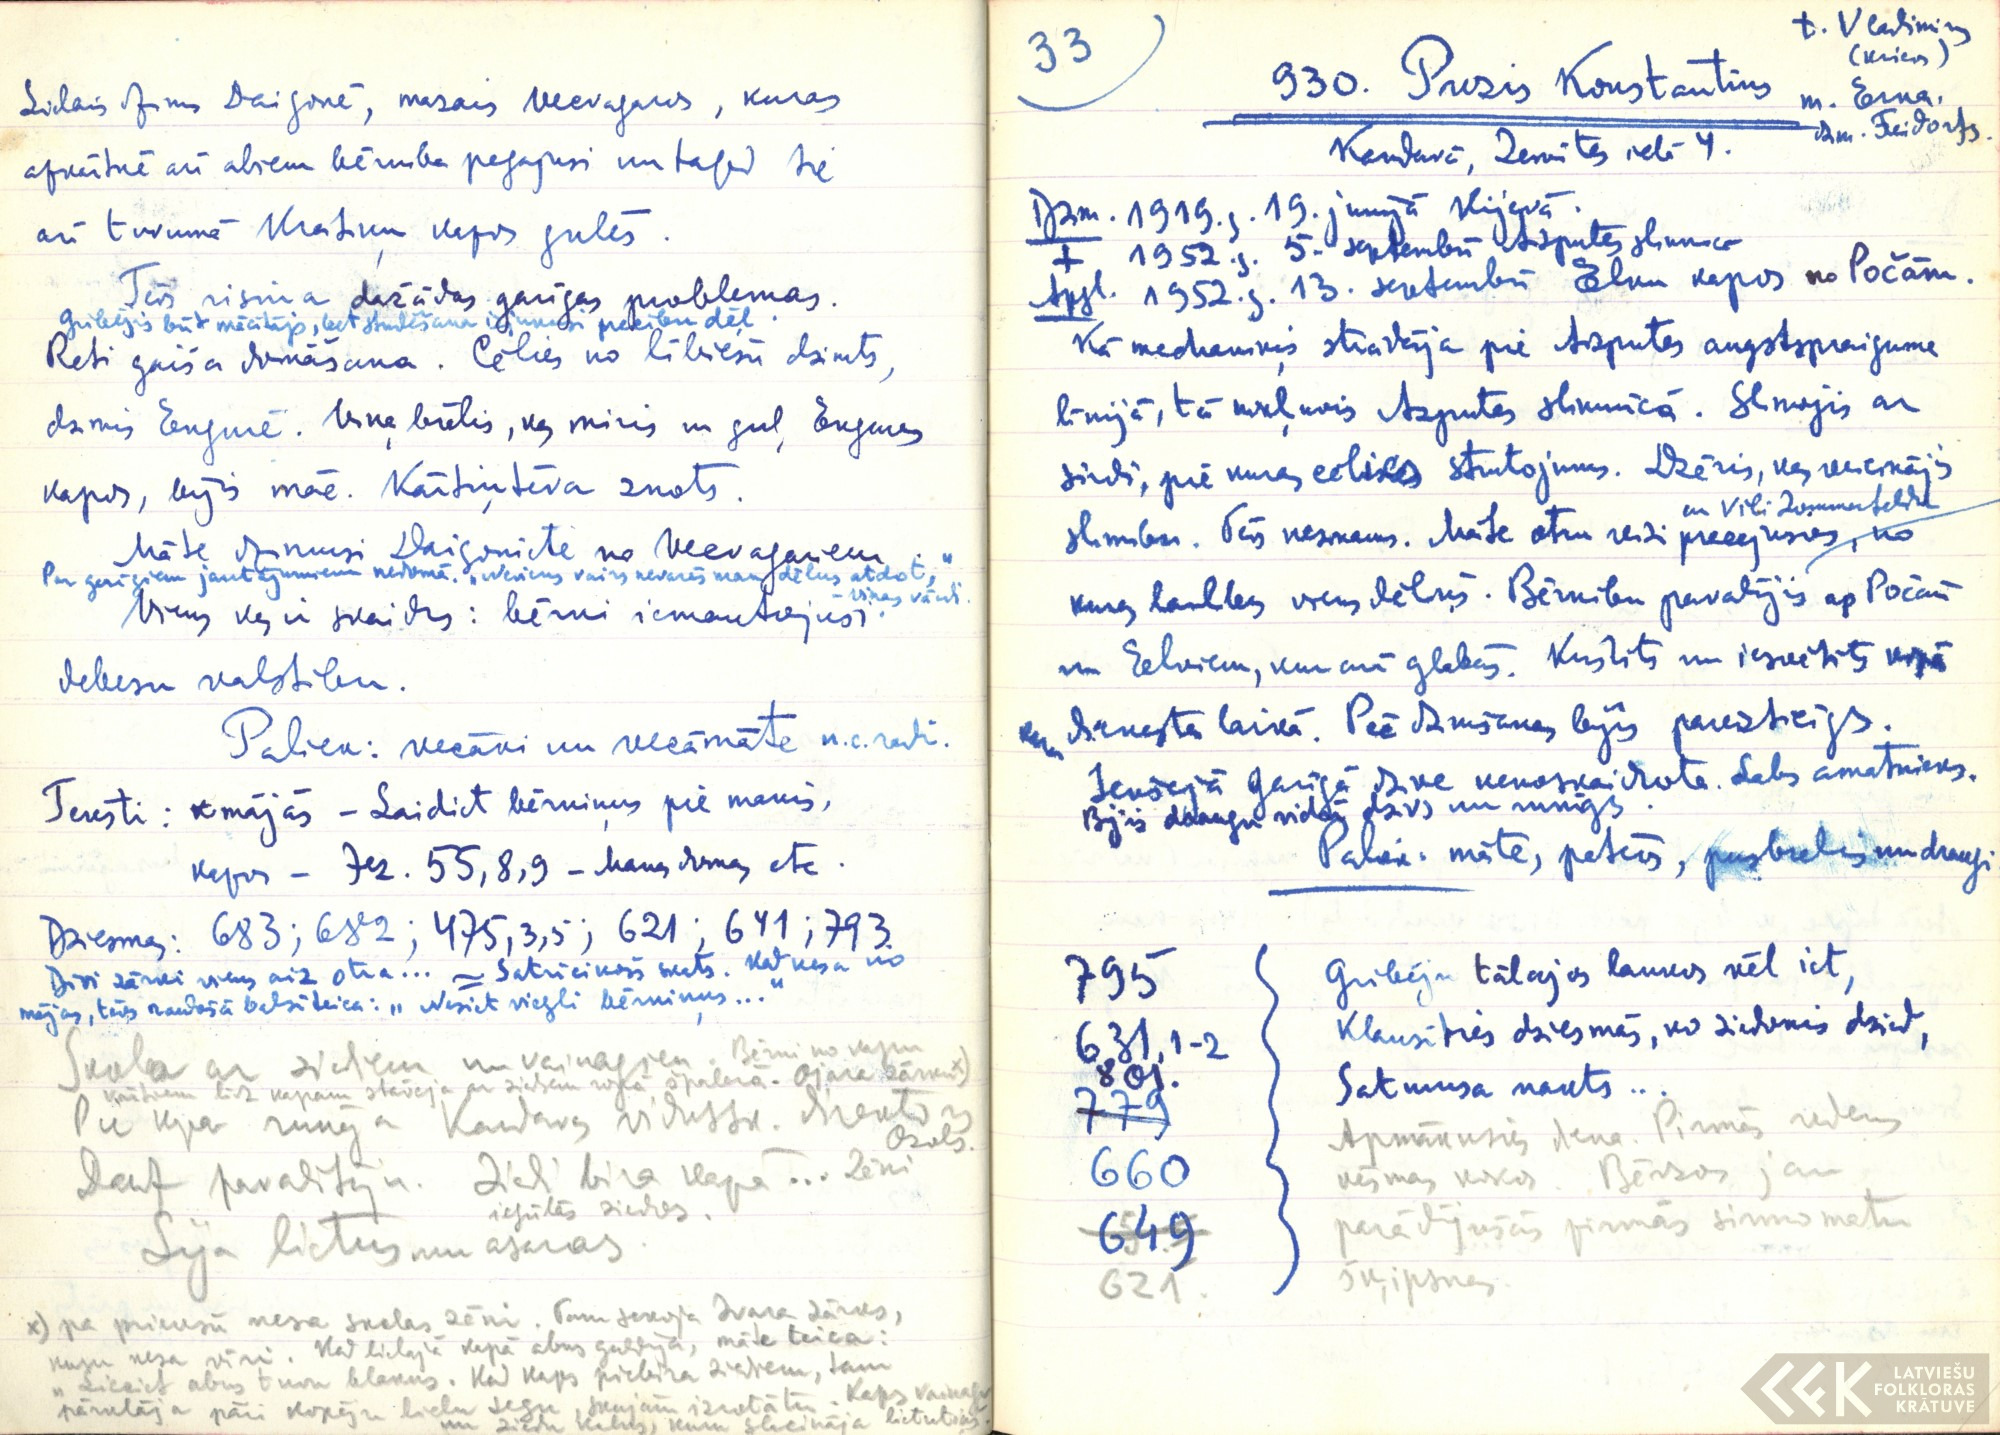 Lielais dzimis Daigonē, mazais Vecvagaros, kuras
apkaitnē arī abiem bērnība pagājusi un tagad šie
arī turumā Kratiņu kapos gulēs.
Tēvs risina dažādas garīgas problemas.
Gribējis būt mācītājs, bet studēšana dēļ.
Reti gaiša domāšana. Cēlies no lībiešu dzimts,
dzimis Engurē. Viņa brālis, kas miris un guļ Engures
kapos, bijis māc. Kārtiņtēva znots.
Māte dzimusi Daigoniete no Vecvagariem.
Par garīgiem jautājumiem nedomā. „Neviens vairs nevarēs man dēlus atdot,"
- viņas vārdi.
Viens kas ir skaidrs: bērni iemantojuši
debesu valstību.
Paliek: vecāki un vecāmāte u.c. radi.
Teksti: mājās – Laidiet bērniņus pie manis,
kapos – Jez. 55,8,9 – Manas domas etc.
Dziesmas: 683; 682; 475,3,5; 621; 641; 793
Divi zārki viens aiz otra... = Satriecošs skats. Kad nesa no
mājas, tēvs raudošā balsī teica: „Nesiet viegli bērniņus..."
Skola ar ziediem un vainagiem. Bērni no kapu
vārtiem līdz kapam stāvēja ar ziediem rokā, špalerā. Ojāra zārku x)
Pie kapa runāja Kandavas vidussk. direktors
Ozols.
Daudz pavadītāju. Ziedi bira kapā... Zēni
iegūlās ziedos.
Lija lietus un asaras.
x) pa priekšu nesa skolas zēni. Tam sekoja Ivara zārks,
kuru nesa vīri. Kad lielajā kapā abus guldīja, māte teica:
„Lieciet abus tuvu blakus. Kad kaps piebira ziediem, tam
pārklāja pāri kopēju lielu segu, skujām izrotātu. Kaps vainagu
un ziedu kalns, kuru slacināja lietutiņš.
33
930. Prezis Konstantins
t. Vladimirs
(krievs)
m. Erna.
dzm. Feidorfs.
Kandavā, Zemītes ielā 4.
Dzm. 1919.g. 19. junijā Kijevā.
+ 1952.g. 5. septembrī Aizputes slimnīcā
Apgl. 1952.g. 13. septembrī Elku kapos no Počām.
Kā mechaniķis strādāja pie Aizputes augstspraiguma
līnijā, tā nokļuvis Aizputes slimnīcā. Slimojis ar
sirdi, pie kuras cēlies strutojums. Dzēris, kas veicinājis
slimību. Tēvs nezinams. Māte otru reizi precējusies, no
ar Vili Zommerfeldu
kuras laulības viens dēls. Bērnību pavadījis ap Počām
un Eelkiem, kur arī glabās. Kristīts un iesvētīts
kara dienesta laikā. Pēc dzimšanas bijis pareizticīgs.
Iekšējā garīgā dzīve nenoskaidrota. Labs amatnieks.
Bijis draugu vidū dzīvs un runīgs.
Paliek: māte, patēvs, pusbrālis un draugi
795
631,1-2
801.
779
660
649
621.
Gribēju tālajos laukos vēl iet,
Klausīties dziesmās, ko ziedonis dzied,
Satumsa nakts...
Apmākusies diena. Pirmās rudens
vēsmas kokos. Bērzos jau
parādījušās pirmās sirmo matu
šķipsnas.
LATVIEŠU
FOLKLORAS
KRĀTUVE